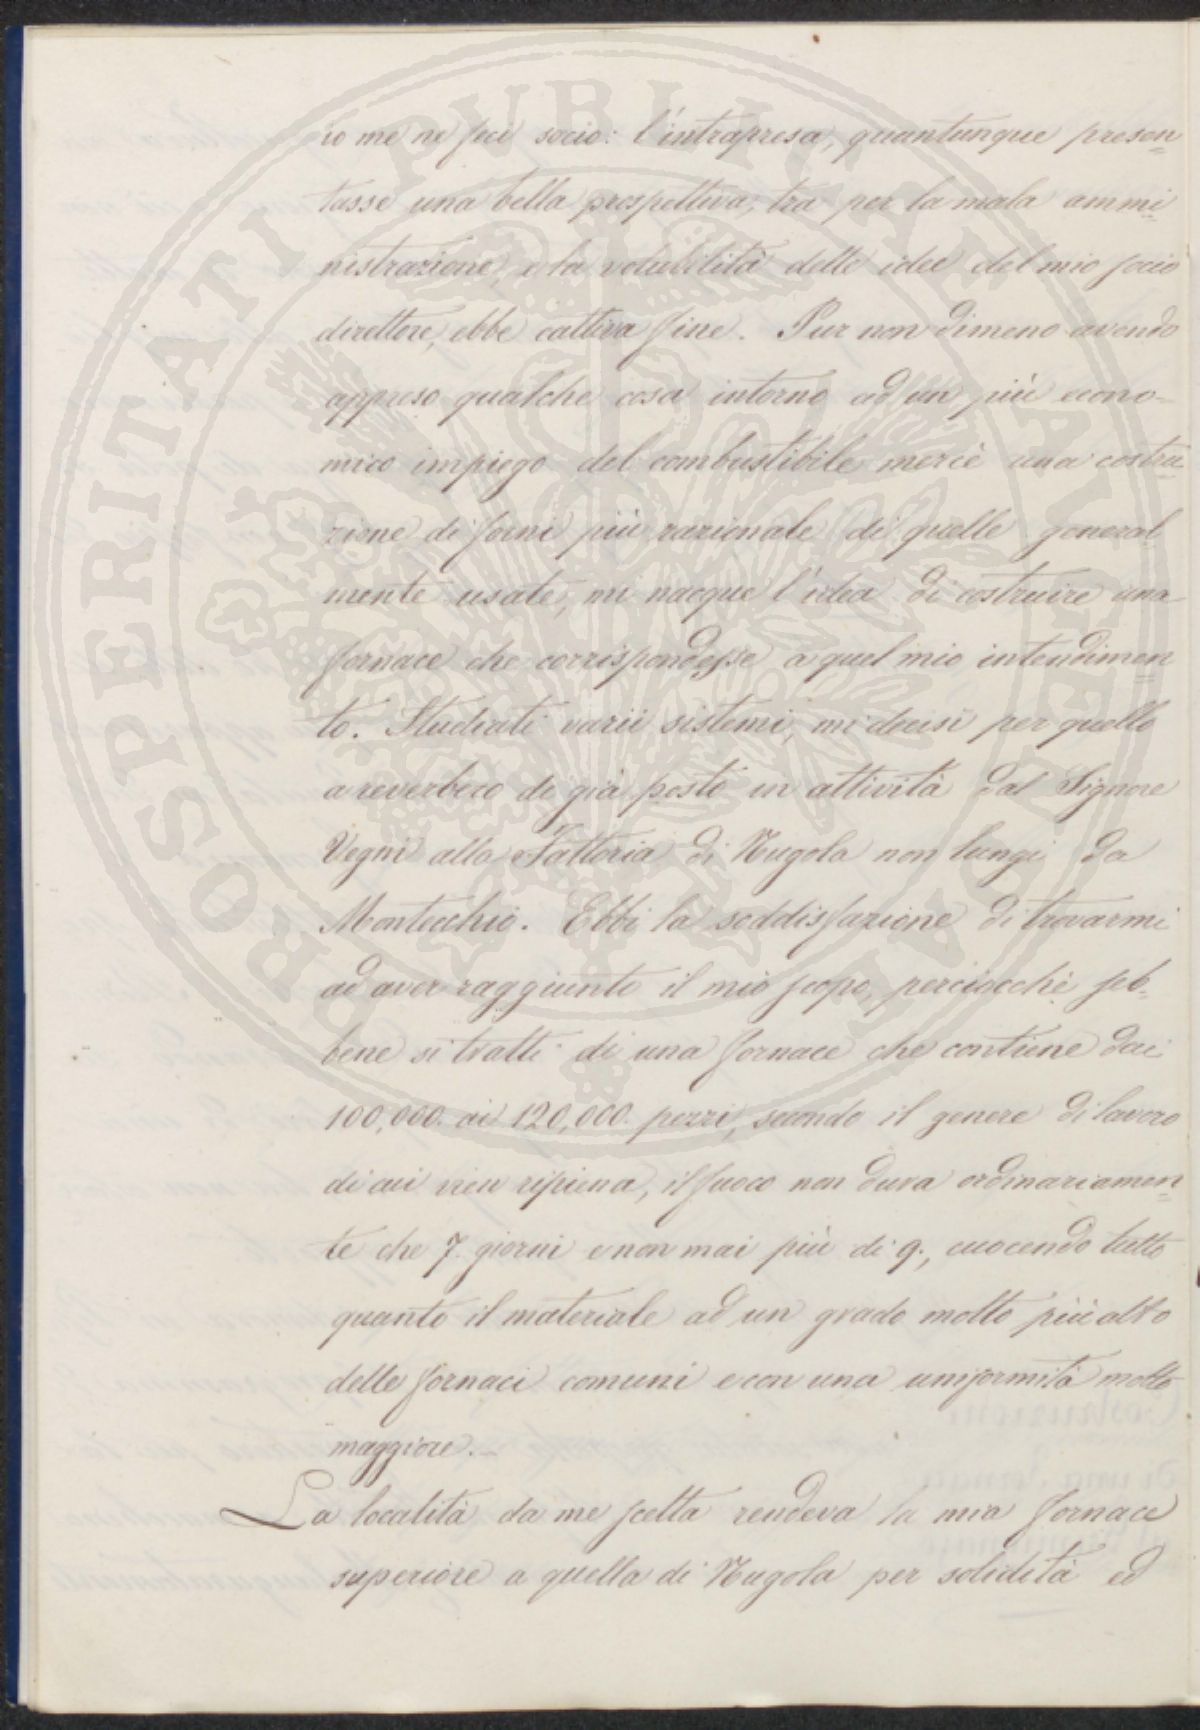 io me ne feci socio: l'intrapresa, quantunque presen=
tasse una bella prospettiva, tra per la mala ammi
nistrazione, e la volubilità delle idee del mio socio
direttore, ebbe cattiva fine. Pur non dimeno avendo
appreso qualche cosa intorno ad un più econo=
mico impiego del combustibile mercè una costru
zione di forni più razionale di quelle general
mente usate, mi nacque l'idea di costruire una
fornace che corrispondesse a quel mio intendimen
to. Studiati varii sistemi, mi decisi per quello
a reverbero di già posto in attività dal Signore
Vegni alla Fattoria di Nugola non lungi da
Montecchio. Ebbi la soddisfazione di trovarmi
ad aver raggiunto il mio scopo, perciocchè seb=
bene si tratti di una fornace che contiene dai
100,000. ai 120,000. pezzi, secondo il genere di lavoro
di cui vien ripiena, il fuoco non dura ordinariamen=
te che 7. giorni e non mai più di 9., cuocendo tutto
quanto il materiale ad un grado molto più alto
delle fornaci comuni e con una uniformità molto
maggiore.
La località da me scelta rendeva la mia fornace
superiore a quella di Nugola per solidità ed
PROSPERITATI PUBLICAE AUGENDAE